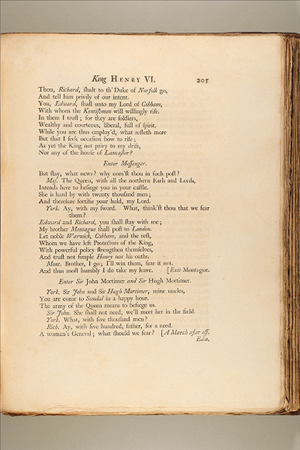 King HENRY VI. 205
Thou, Richard, shalt to th' Duke of Norfolk go,
And tell him privily of our intent.
You, Edward, shall unto my Lord of Cobham,
With whom the Kentishmen will willingly rise.
In them I trust; for they are soldiers,
Wealthy and courteous, liberal, full of spirit.
While you are thus employ'd, what resteth more
But that I seek occasion how to rise;
As yet the King not privy to my drift,
Nor any of the house of Lancaster?
Enter Messenger.
But stay, what news? why com'st thou in such post?
Mes. The Queen, with all the northern Earls and Lords,
Intends here to besiege you in your castle.
She is hard by with twenty thousand men;
And therefore fortifie your hold, my Lord.
York. Ay, with my sword. What, think'st thou that we fear
them?
Edward and Richard, you shall stay with me;
My brother Montague shall post to London.
Let noble Warwick, Cobham, and the rest,
Whom we have left Protectors of the King,
With powerful policy strengthen themselves,
And trust not simple Henry nor his oaths.
Mont. Brother, I go; I'll win them, fear it not.
And thus most humbly I do take my leave. [Exit Montague.
Enter Sir John Mortimer and Sir Hugh Mortimer.
York. Sir John and Sir Hugh Mortimer, mine uncles,
You are come to Sandal in a happy hour.
The army of the Queen means to besiege us.
Sir John. She shall not need, we'll meet her in the field.
York. What, with five thousand men?
Rich. Ay, with five hundred, father, for a need.
A woman's General; what should we fear? [A March afar off.
Edw.